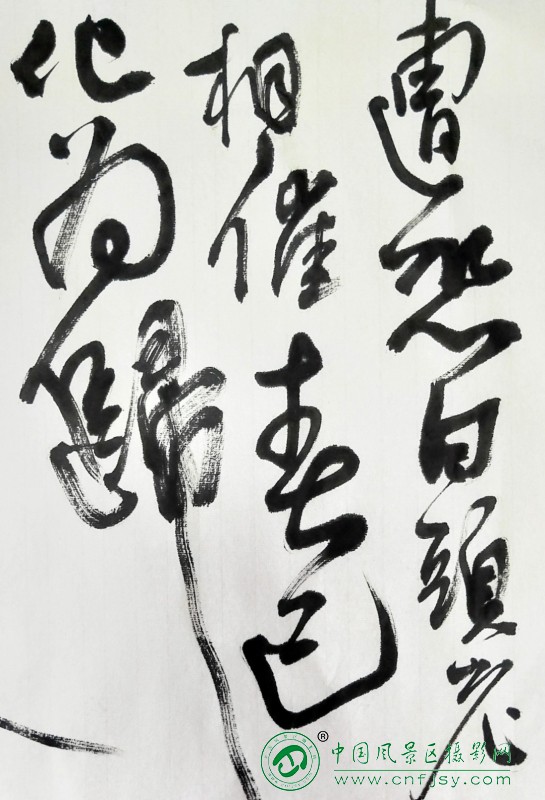 遭怨白頭
相催春已
化为歸
®中国风景区摄影网
www.cnfjsy.com